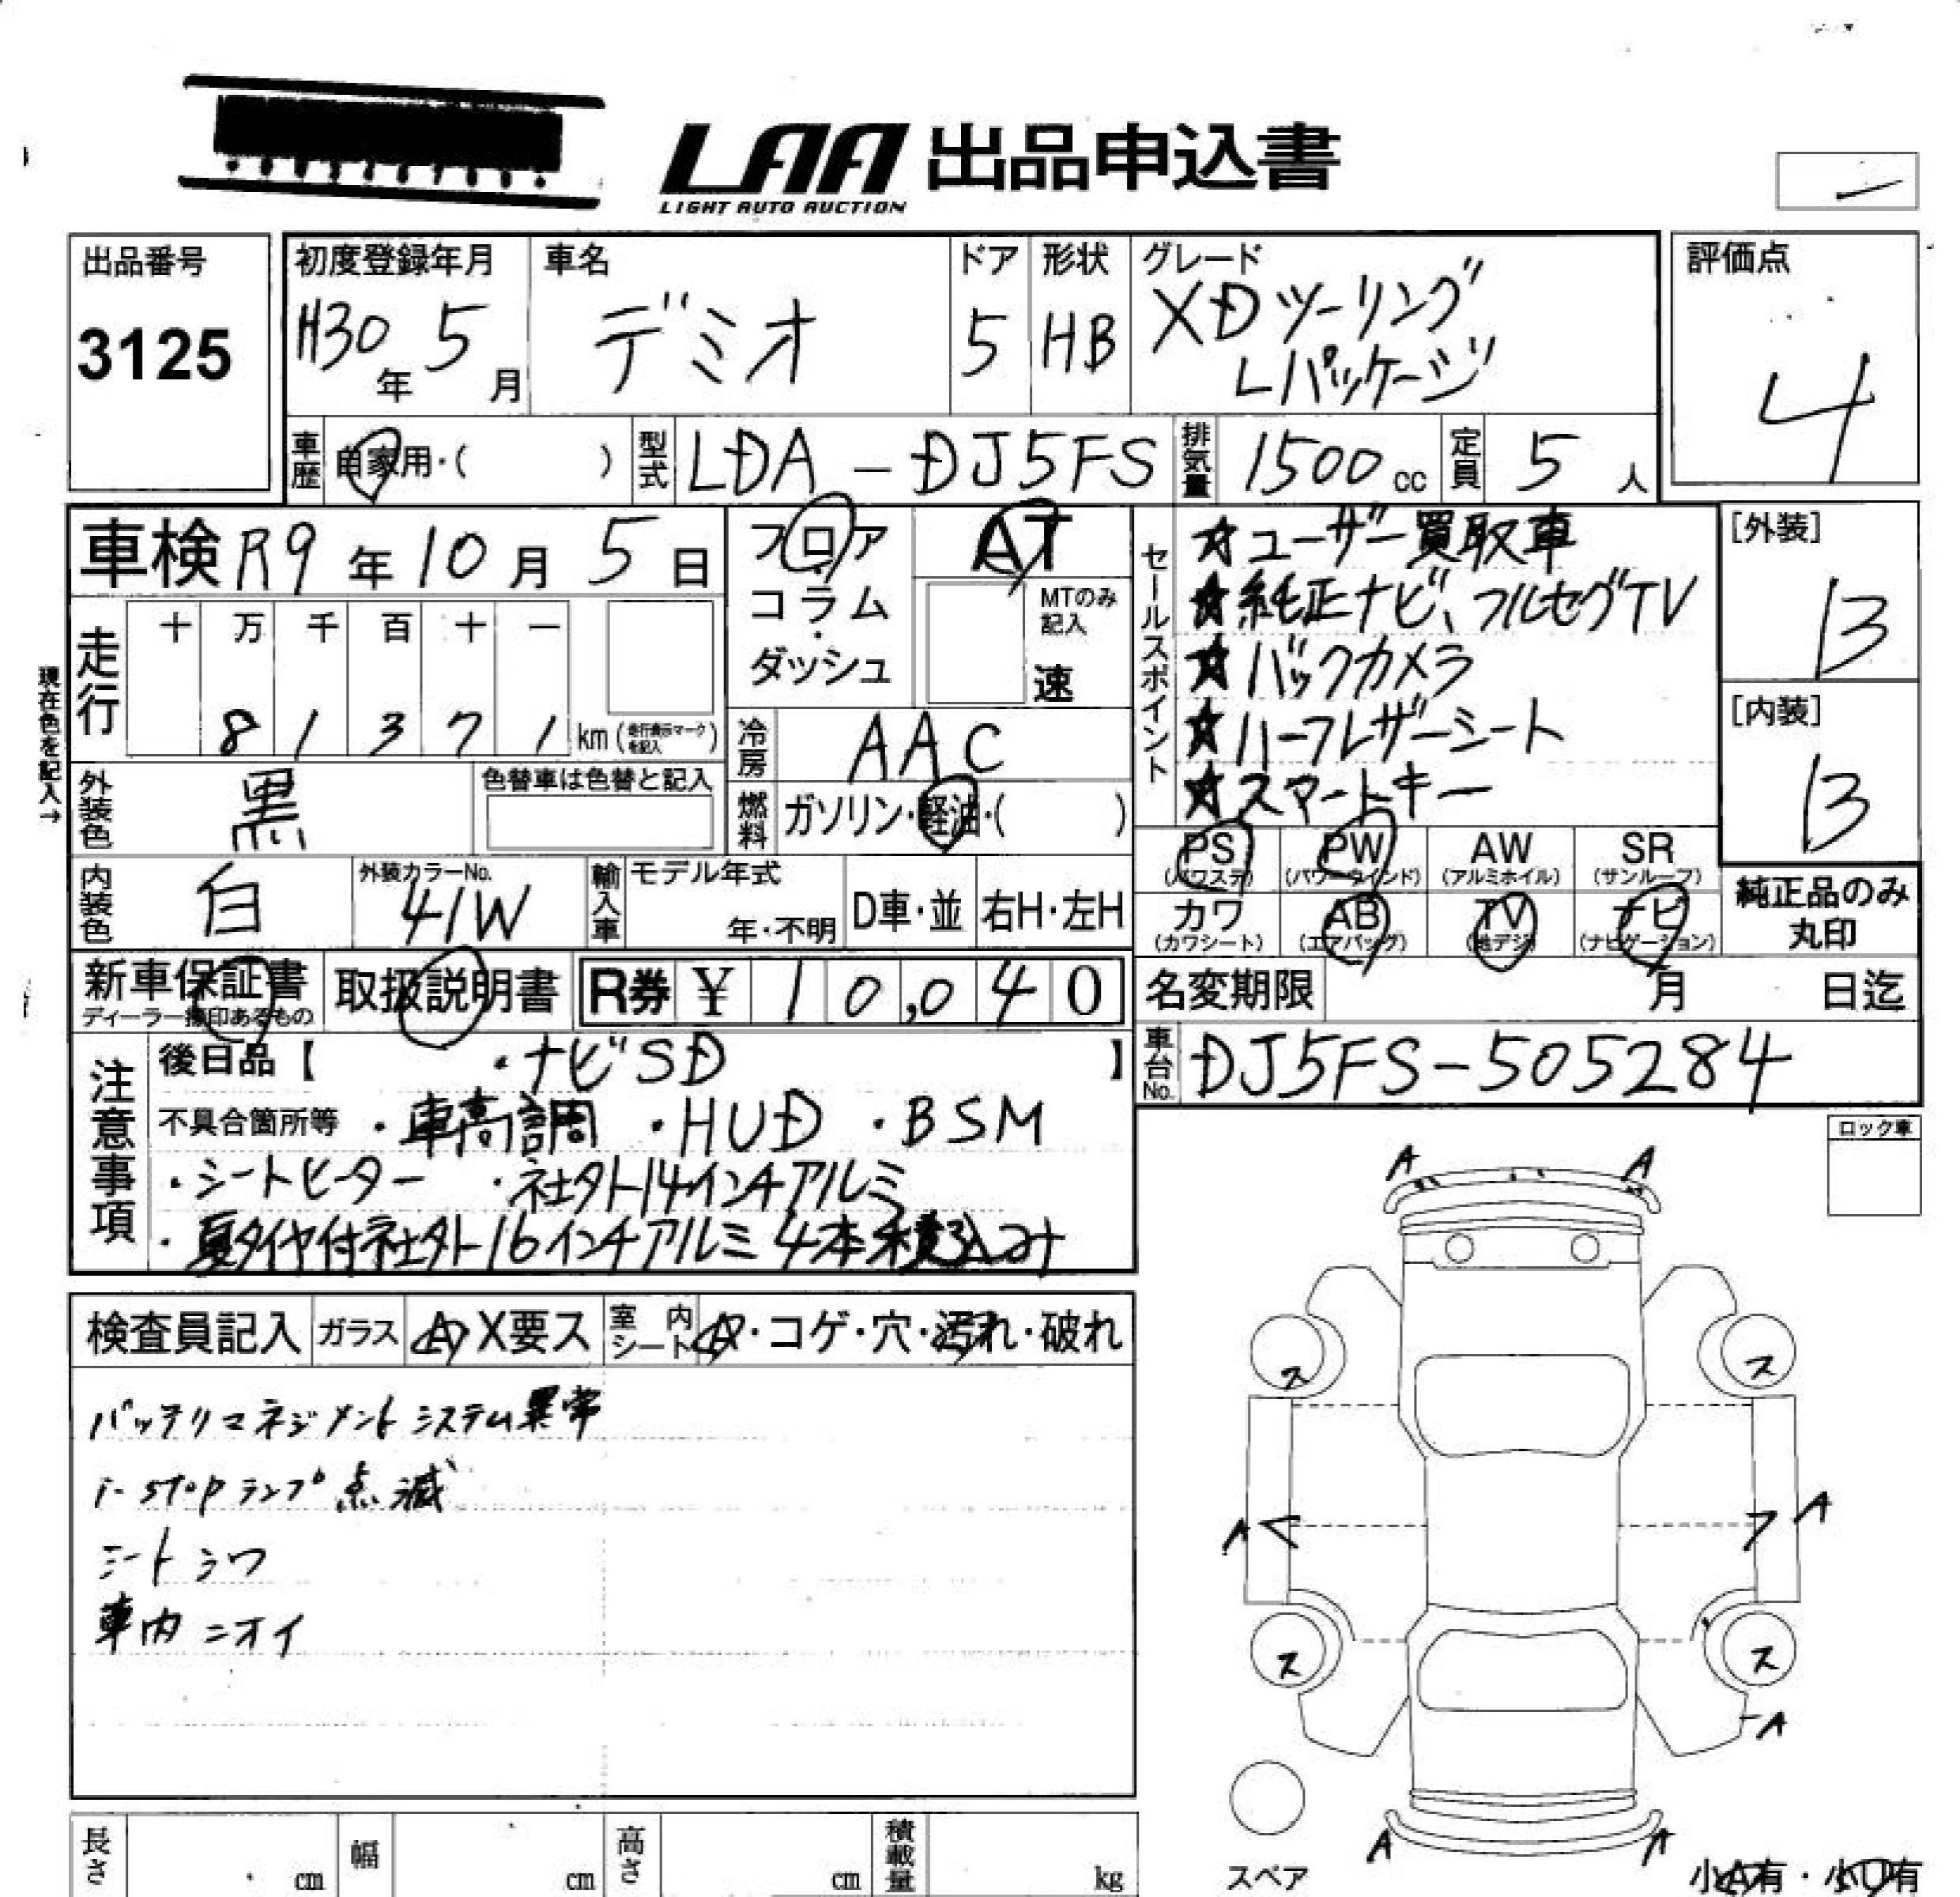 LAA 出品申込書
LIGHT AUTO AUCTION
出品番号
3125
初度登録年月
H30年 5月
車名
デミオ
ドア
5
形状
HB
グレード
XDツーリング
Lパッケージ
評価点
4
車歴
自家用・( )
型式
LDA-DJ5FS
排気量
1500cc
定員
5人
車検 R9年10月5日
フロア
・
コラム
・
ダッシュ
AT
MTのみ
記入
速
セールスポイント
★ユーザー買取車
★純正ナビ、フルセグTV
★バックカメラ
★ハーフレザーシート
★スマートキー
[外装]
B
[内装]
B
現在色を記入→
走行
十 万 千 百 十 一
8 1 3 7 1 km (走行表示マークを記入)
冷房
AAC
燃料
ガソリン・軽油・( )
外装色
黒
色替車は色替と記入
内装色
白
外装カラーNo.
41W
輸入車
モデル年式
年・不明
D車・並
右H・左H
PS
(パワステ)
PW
(パワーウインド)
AW
(アルミホイル)
SR
(サンルーフ)
カワ
(カワシート)
AB
(エアバッグ)
TV
(地デジ)
ナビ
(ナビゲーション)
純正品のみ
丸印
新車保証書
ディーラー捺印あるもの
取扱説明書
R券 ¥ 10,040
名変期限 月 日迄
車台No.
DJ5FS-505284
注意事項
後日品【 ・ナビSD 】
不具合箇所等 ・車高調 ・HUD ・BSM
・シートヒーター ・社外14インチアルミ
・夏タイヤ付社外16インチアルミ4本積込み
ロック車
検査員記入
ガラス
A X要ス
室内シート
A・コゲ・穴・汚れ・破れ
バッテリマネジメントシステム異常
i-stopランプ点滅
シートシワ
車内ニオイ
A A
ス ス
A A
ス ス
A
A A
スペア
小A有・小U有
長さ cm
幅 cm
高さ cm
積載量 kg